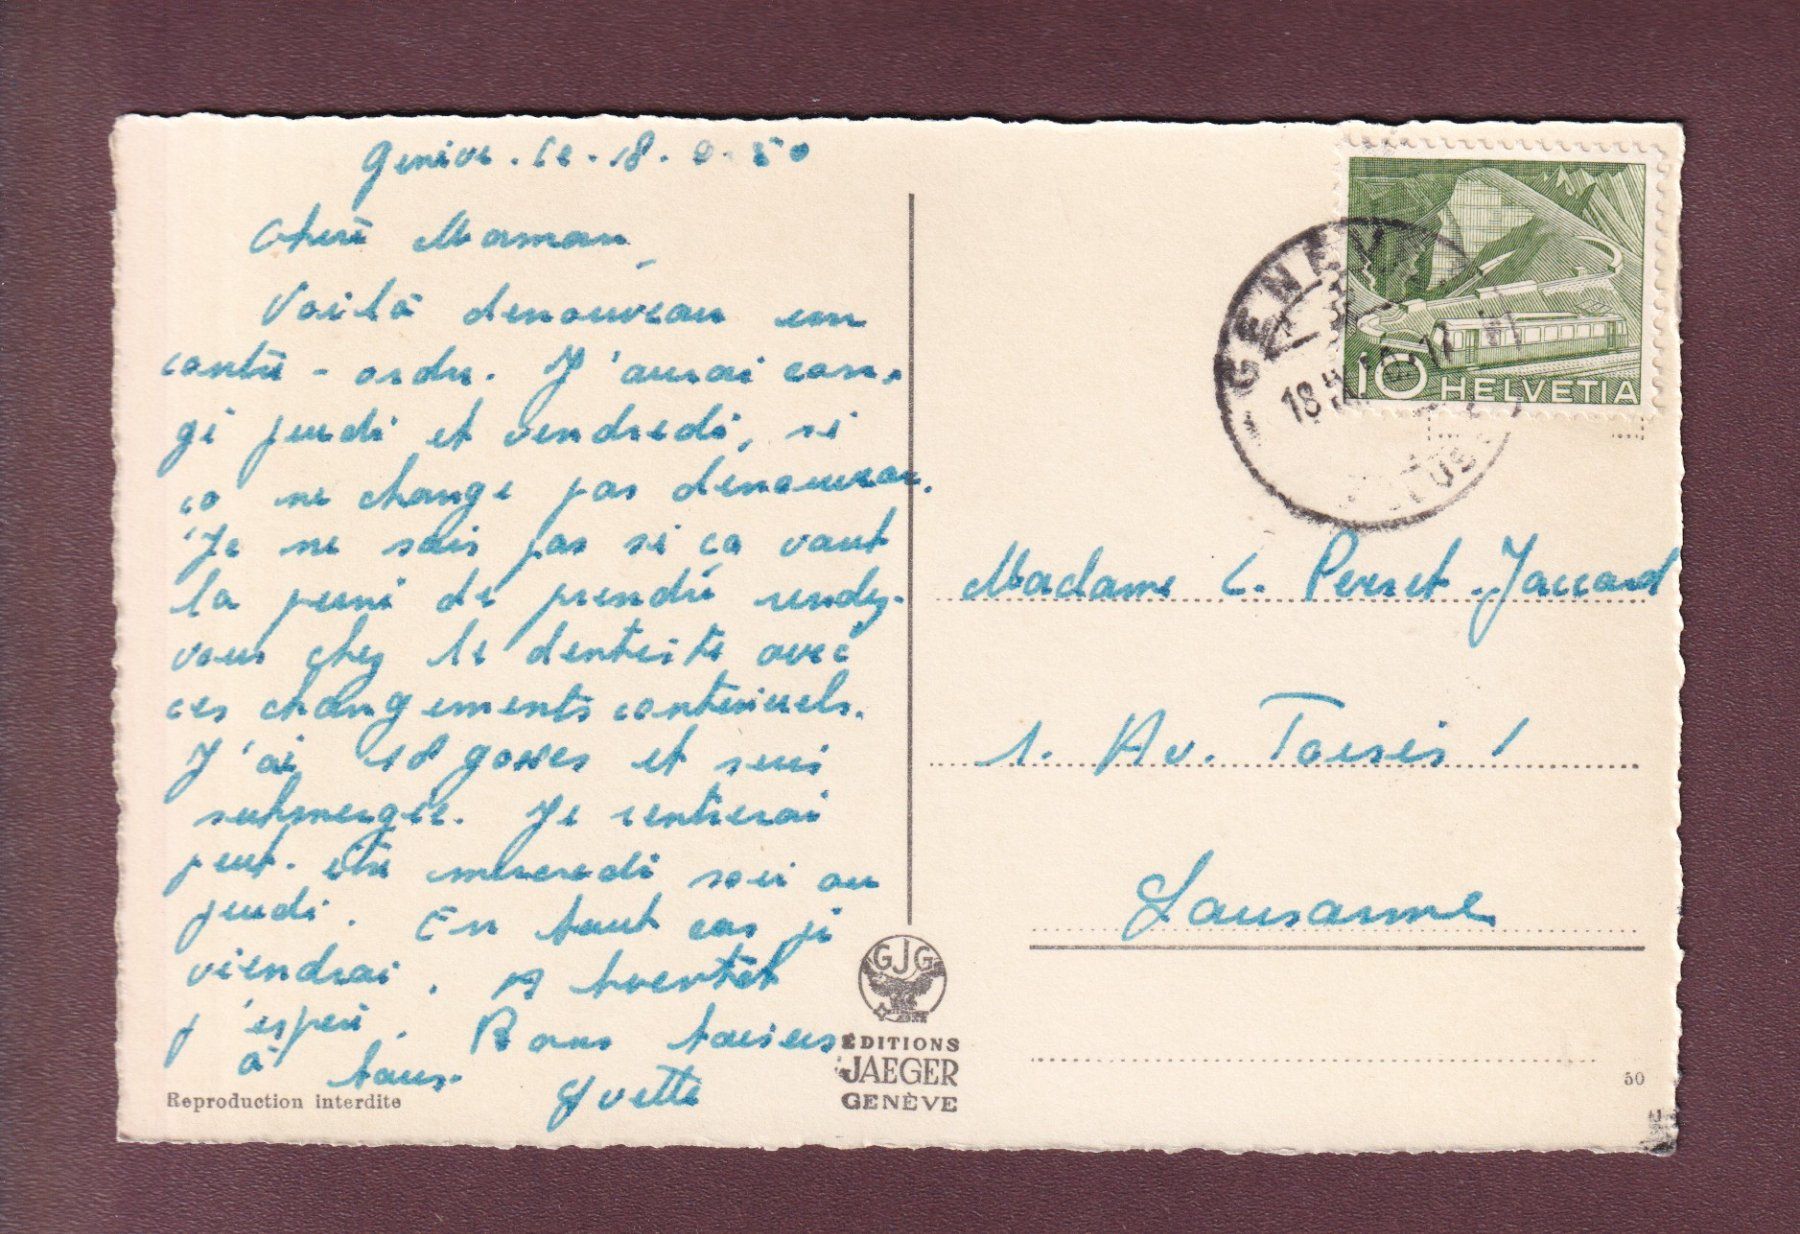 Genève. le 18.
Chère Maman,
Voilà denouveau un
contre-ordre. J'aurai con-
gé jeudi et vendredi, si
ça ne change pas denouveau.
Je ne sais pas si ça vaut
la peine de prendre rendez-
vous chez le dentiste avec
ces changements continuels.
J'ai 18 gosses et suis
submergée. Je rentrerai
peut-être mercredi soir ou
jeudi. En tout cas je
viendrai. A bientôt
j'espère. Bons baisers
à tous.
Yvette
Reproduction interdite
GJG
ÉDITIONS
JAEGER
GENÈVE
GENÈVE
18
10 HELVETIA
Madame L. Perret-Jaccard
1. Av. Toises 1
Lausanne
50